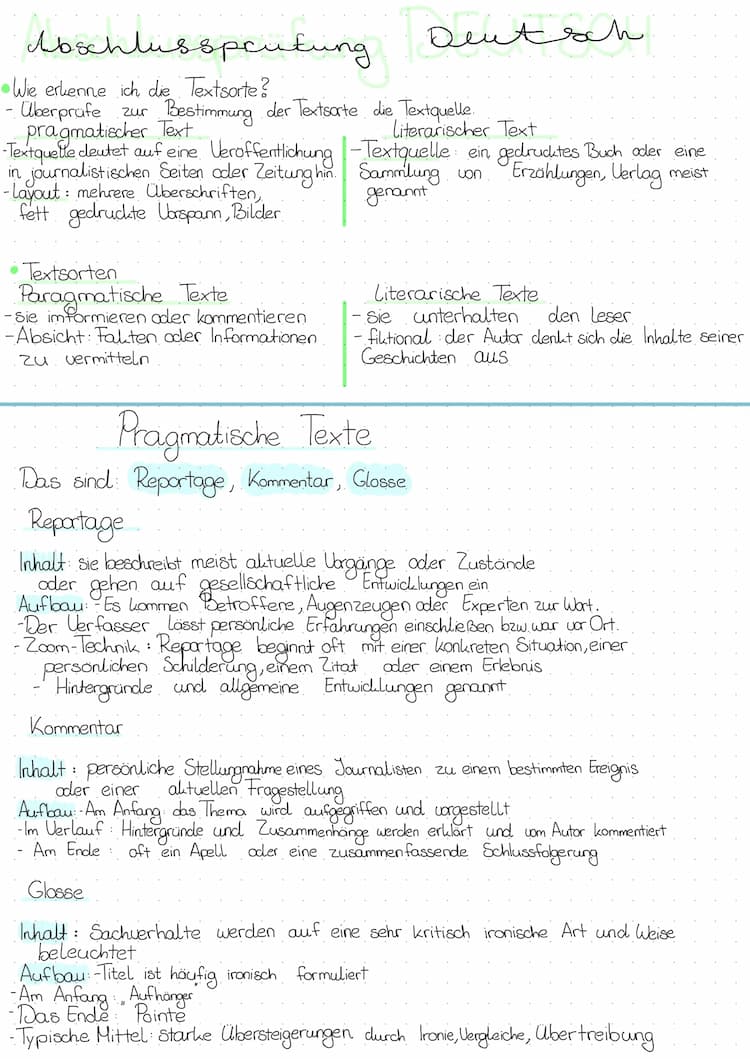 Abschlussprüfung Deutsch
• Wie erkenne ich die Textsorte?
- Überprüfe zur Bestimmung der Textsorte die Textquelle.
pragmatischer Text
- Textquelle deutet auf eine Veröffentlichung
in journalistischen Seiten oder Zeitung hin.
- Layout: mehrere Überschriften,
fett gedruckte Vorspann, Bilder
Literarischer Text
- Textquelle: ein gedrucktes Buch oder eine
Sammlung von Erzählungen, Verlag meist
genannt
• Textsorten
Paragmatische Texte
- sie informieren oder kommentieren
- Absicht: Fakten oder Informationen
zu vermitteln
Literarische Texte
- sie unterhalten den Leser
- fiktional: der Autor denkt sich die Inhalte seiner
Geschichten aus
Pragmatische Texte
Das sind: Reportage, Kommentar, Glosse
Reportage
Inhalt: sie beschreibt meist aktuelle Vorgänge oder Zustände
oder gehen auf gesellschaftliche Entwicklungen ein
Aufbau: - Es kommen Betroffene, Augenzeugen oder Experten zur Wort.
- Der Verfasser lässt persönliche Erfahrungen einschließen bzw. war vor Ort.
- Zoom-Technik: Reportage beginnt oft mit einer konkreten Situation, einer
persönlichen Schilderung, einem Zitat oder einem Erlebnis
- Hintergründe und allgemeine Entwicklungen genannt
Kommentar
Inhalt: persönliche Stellungnahme eines Journalisten zu einem bestimmten Ereignis
oder einer aktuellen Fragestellung
Aufbau: - Am Anfang: das Thema wird aufgegriffen und vorgestellt
- Im Verlauf: Hintergründe und Zusammenhänge werden erklärt und vom Autor kommentiert
- Am Ende: oft ein Apell oder eine zusammenfassende Schlussfolgerung
Glosse
Inhalt: Sachverhalte werden auf eine sehr kritisch ironische Art und Weise
beleuchtet
Aufbau: - Titel ist häufig ironisch formuliert
- Am Anfang: „Aufhänger"
- Das Ende: Pointe
- Typische Mittel: starke Übersteigerungen durch Ironie, Vergleiche, Übertreibung